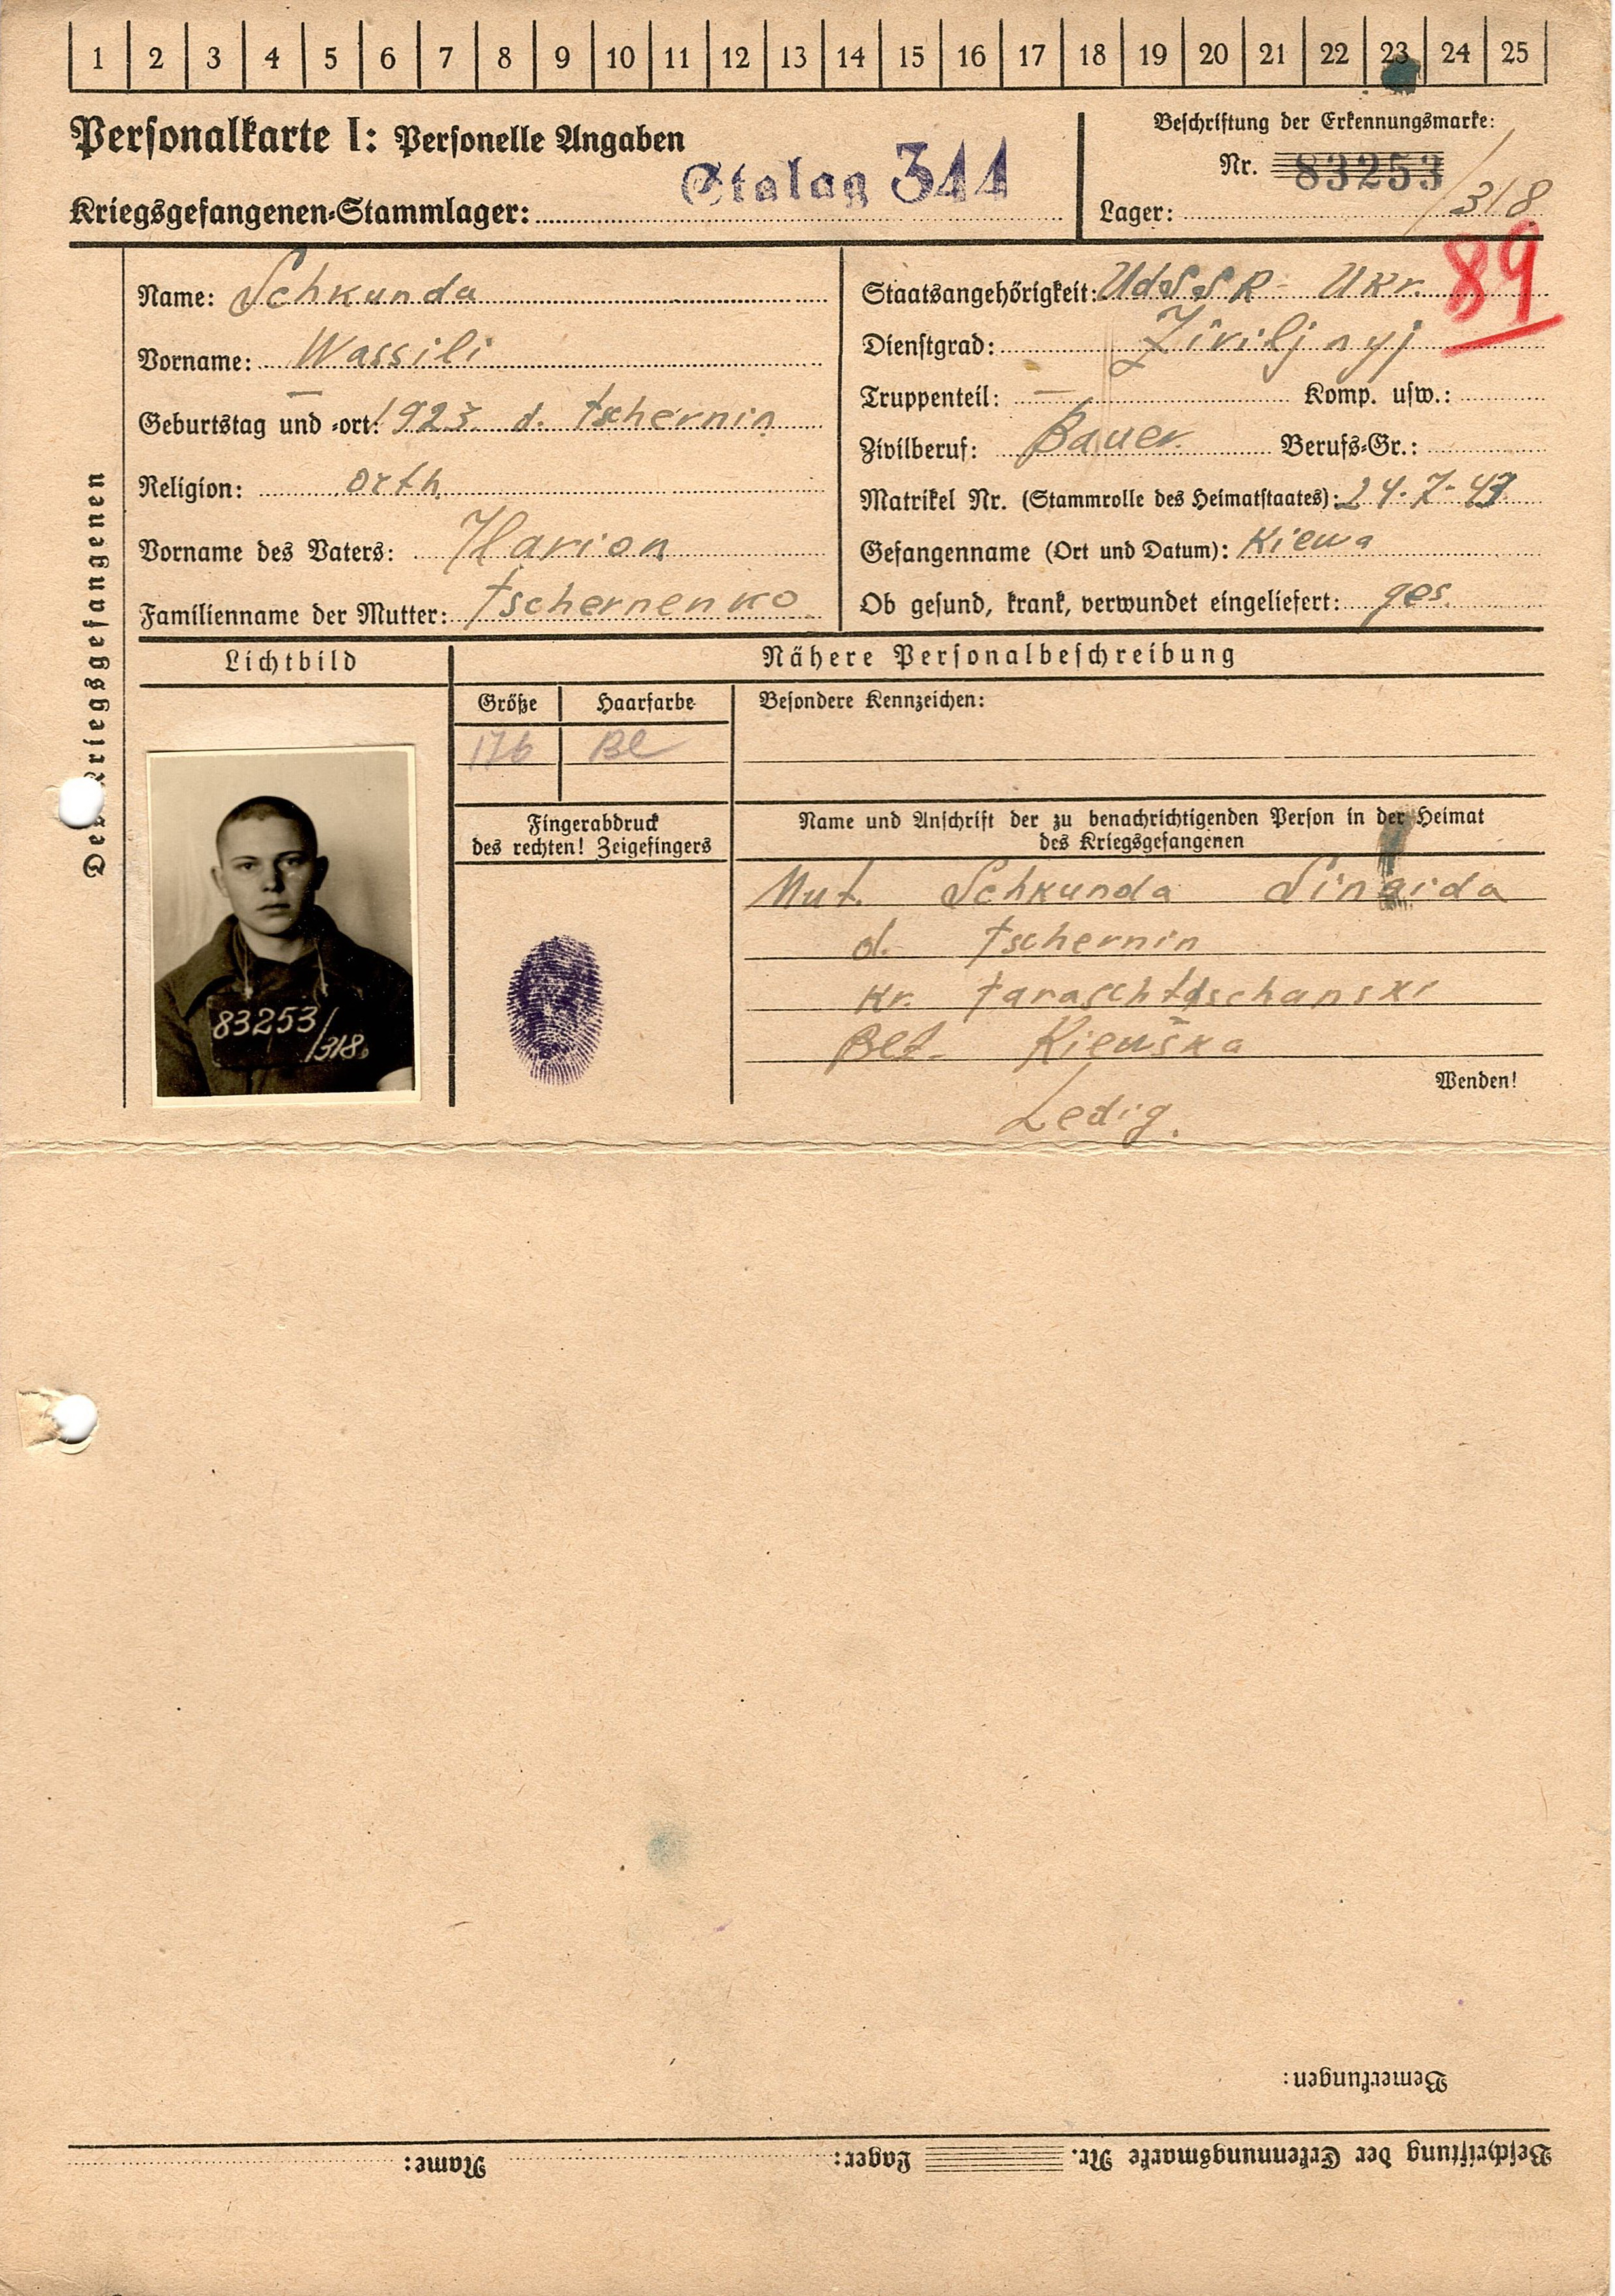 1 2 3 4 5 6 7 8 9 10 11 12 13 14 15 16 17 18 19 20 21 22 23 24 25
Personalkarte I: Personelle Angaben
Stalag 344
Kriegsgefangenen-Stammlager:
Beschriftung der Erkennungsmarke:
Nr. 83253
Lager: /318
89
Des Kriegsgefangenen
Name: Schkunda
Vorname: Wassili
Geburtstag und -ort: 1923. d. Tschernin
Religion: orth
Vorname des Vaters: Ilarion
Familienname der Mutter: Tschernenko
Staatsangehörigkeit: UdSSR - Ukr.
Dienstgrad: Ziviljnyj
Truppenteil: — Komp. usw.:
Zivilberuf: Bauer Berufs-Gr.:
Matrikel Nr. (Stammrolle des Heimatstaates): 24.7-43
Gefangenname (Ort und Datum): Kiewa
Ob gesund, krank, verwundet eingeliefert: ges.
Lichtbild
Nähere Personalbeschreibung
Größe Haarfarbe
176 Bl
Besondere Kennzeichen:
Fingerabdruck
des rechten! Zeigefingers
83253/
/318.
Name und Anschrift der zu benachrichtigenden Person in der Heimat
des Kriegsgefangenen
Mut. Schkunda Sinaida
d. Tschernin
Kr.
Bez. Kiewska
Wenden!
Ledig.
Bemerkungen:
Beschriftung der Erkennungsmarke Nr. Lager: Name: